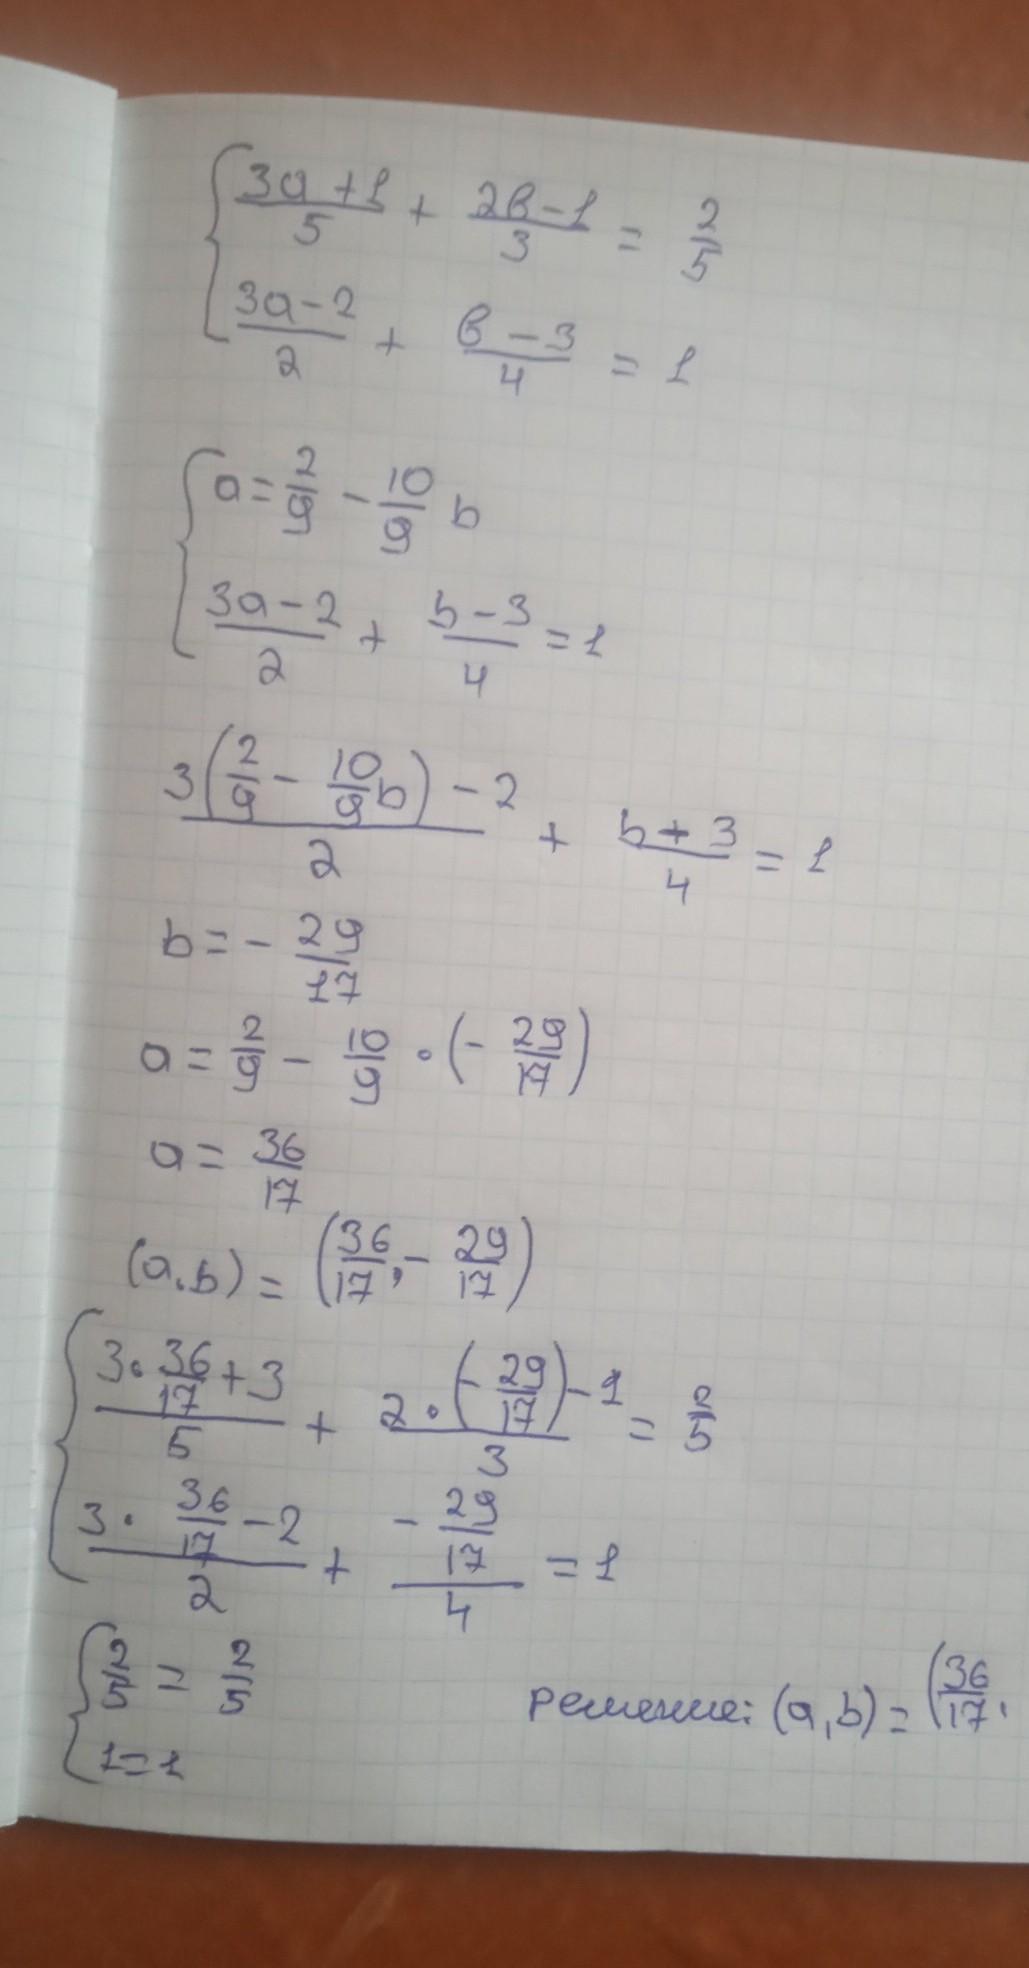 { (3a+1)/5 + (2b-1)/3 = 2/5
(3a-2)/2 + (b-3)/4 = 1
{ a = 2/9 - 10/9 b
(3a-2)/2 + (b-3)/4 = 1
(3(2/9 - 10/9 b) - 2)/2 + (b+3)/4 = 1
b = - 29/17
a = 2/9 - 10/9 · (- 29/17)
a = 36/17
(a,b) = (36/17, - 29/17)
{ (3 · 36/17 + 3)/5 + (2 · (- 29/17) - 1)/3 = 2/5
(3 · 36/17 - 2)/2 + (- 29/17)/4 = 1
{ 2/5 = 2/5
1=1
Решение: (a,b) = (36/17,